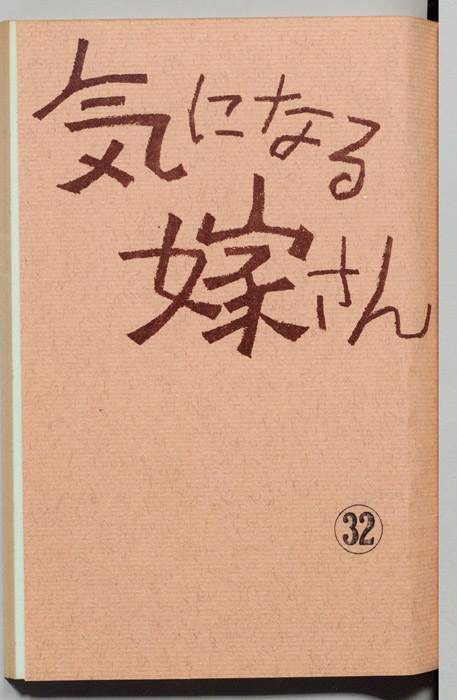 気になる
嫁さん
32